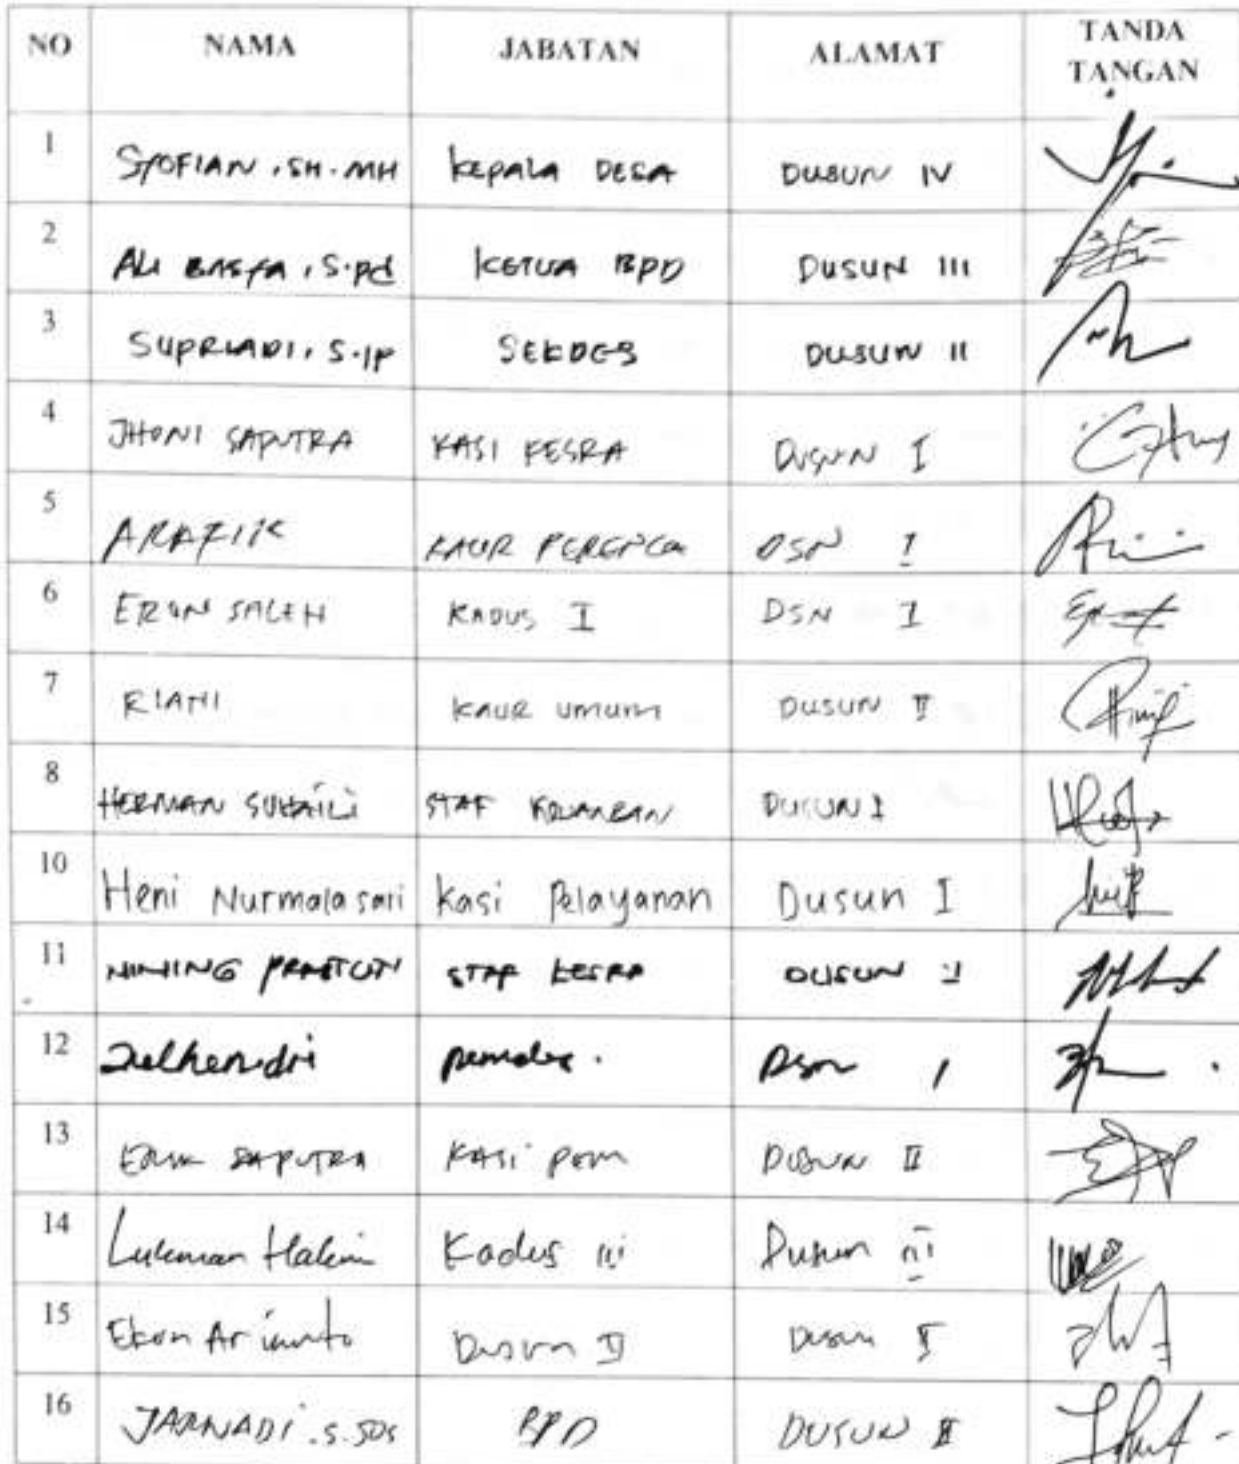 NO NAMA JABATAN ALAMAT TANDA TANGAN
1 SYOFIAN, SH. MH KEPALA DESA DUSUN IV
2 ALI BASFA, S.Pd KETUA BPD DUSUN III
3 SUPRIADI, S.IP SEKDES DUSUN II
4 JHONI SAPUTRA KASI KESRA DUSUN I
5 ARAFIK KAUR DSN I
6 ERON SALEH KADUS I DSN I
7 RIANI KAUR UMUM DUSUN II
8 HERMAN SUHAILI STAF DUSUN I
10 Heni Nurmala sari Kasi Pelayanan Dusun I
11 NINING STAF KESRA DUSUN
12 Zulhendri Dsn I
13 SAPUTRA KASI PEM DUSUN II
14 Lukman Hakim Kadus III Dusun III
15 Arianto Dusun II Dusun
16 JARNADI .S.SOS BPD DUSUN II